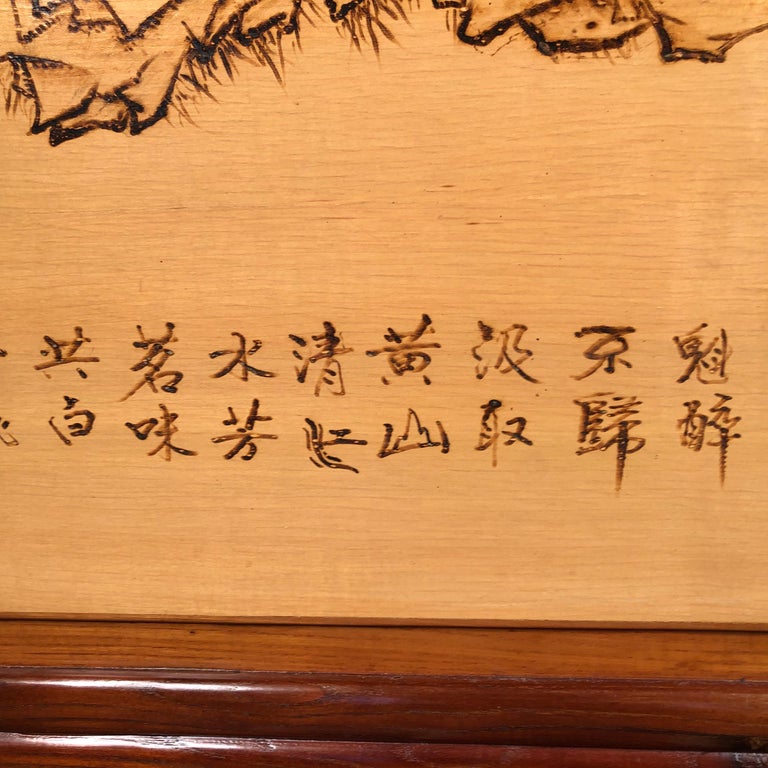 魁醉
不歸
汲取
黄山
清
水芳
茗味
共白